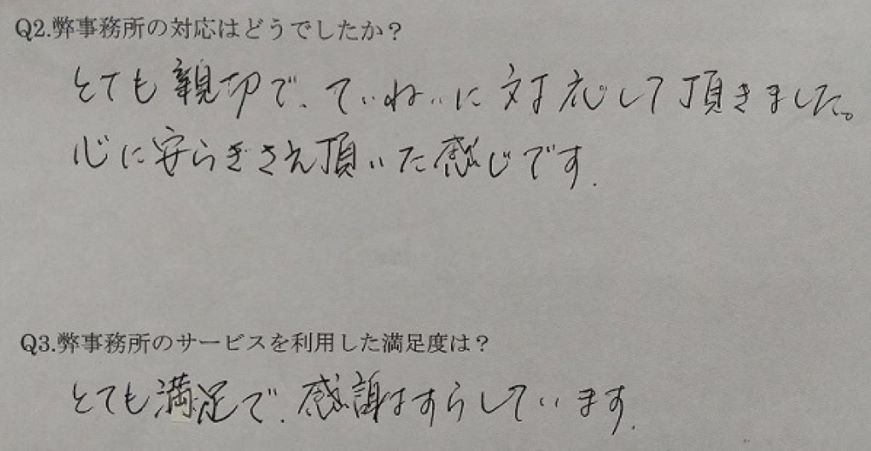 Q2.弊事務所の対応はどうでしたか？
とても親切で、ていねいに対応して頂きました。
心に安らぎさえ頂いた感じです.
Q3.弊事務所のサービスを利用した満足度は？
とても満足で、感謝すらしています.